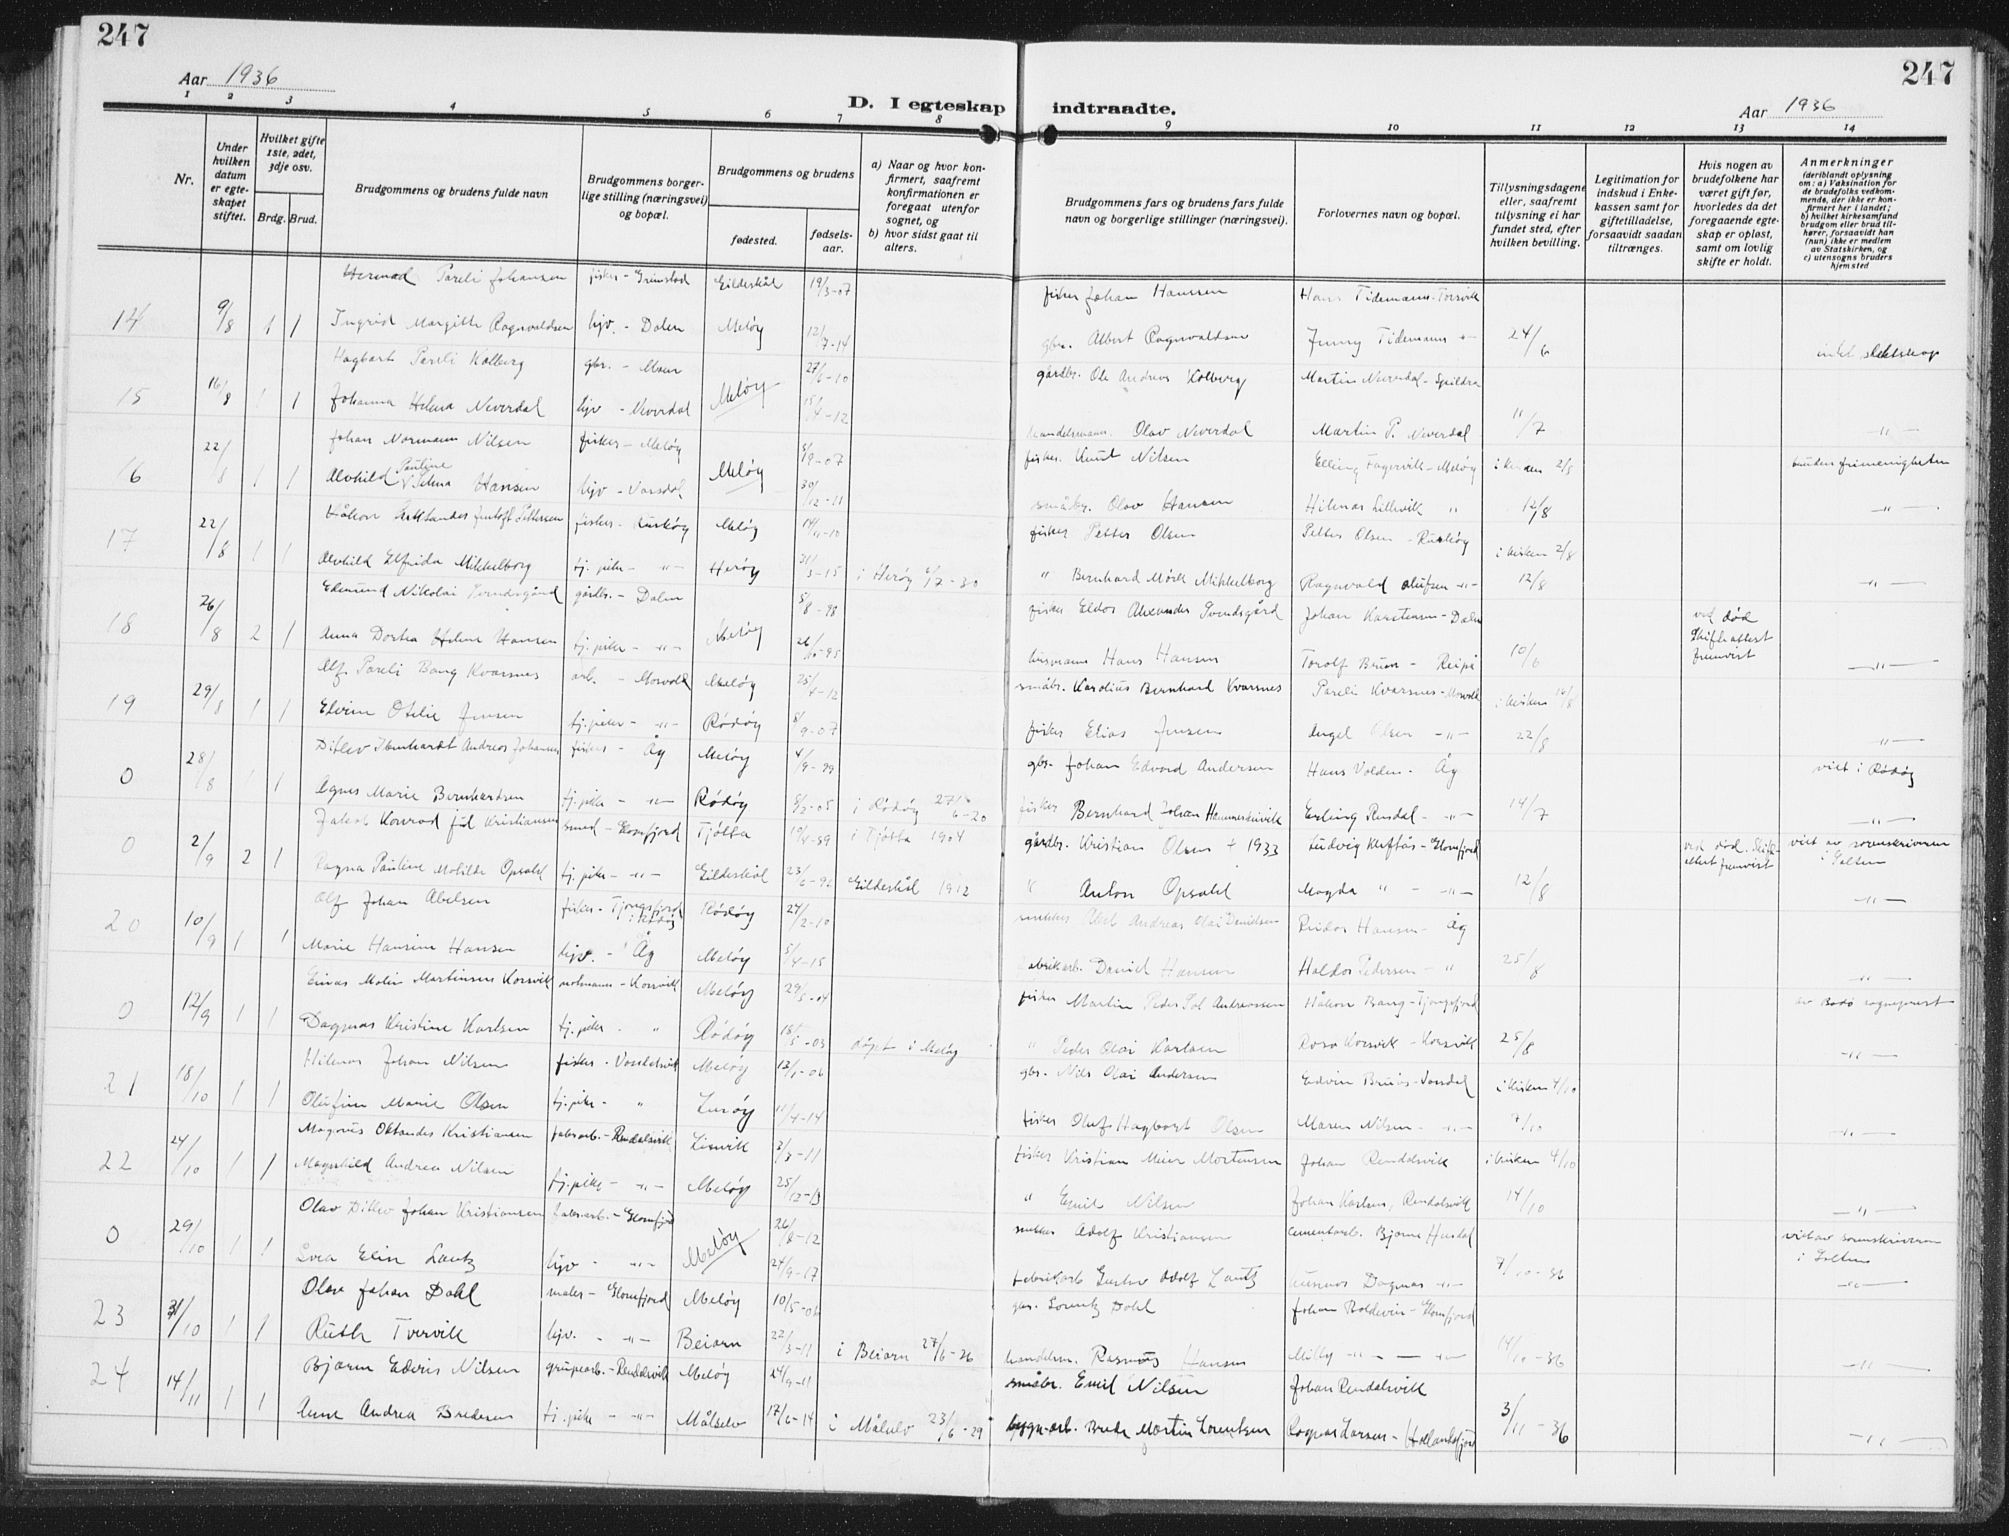 247
247
Aar 1936
Aar 1936
D. I egteskap indtraadte.
1 2 3 4 5 6 7 8 9 10 11 12 13 14
Nr.
Under hvilken datum er egteskapet stiftet.
Hvilket gifte 1ste, 2det, 3dje osv.
Brdg. Brud.
Brudgommens og brudens fulde navn
Brudgommens borgerlige stilling (næringsvei) og bopæl.
Brudgommens og brudens
fødested.
fødselsaar.
a) Naar og hvor konfirmert, saafremt konfirmationen er foregaat utenfor sognet, og
b) hvor sidst gaat til alters.
Brudgommens fars og brudens fars fulde navn og borgerlige stillinger (næringsvei).
Forlovernes navn og bopæl.
Tillysningsdagene eller, saafremt tillysning ei har fundet sted, efter hvilken bevilling.
Legitimation for indskud i Enkekassen samt for giftetilladelse, forsaavidt saadan tiltrænges.
Hvis nogen av brudefolkene har været gift før, hvorledes da det foregaaende egteskap er opløst, samt om lovlig skifte er holdt.
Anmerkninger (deriblandt oplysning om: a) Vaksination for de brudefolks vedkommende, der ikke er konfirmert her i landet; b) hvilket kirkesamfund brudgom eller brud tilhører, forsaavidt han (hun) ikke er medlem av Statskirken, og c) utensogns bruders hjemsted
Pareli Johansen fisker - Grimstad Gildeskål 19/3-07 fisker Johan Hanssen Hans Tidemann - Torsvik
14 9/8 1 1 Ingrid Margith Ragnvaldsen hjv. - Dalen Meløy 12/7-14 gbr. Albert Ragnvaldsen Jenny Tidemann -"- 24/6 intet slektskap
Hagbart Pareli Kolberg gbr. - Mosen 27/6-10 gårdbr. Ole Andreas Kolberg Martin Neverdal - Spildra
15 16/8 1 1 Johanna Helena Neverdal hjv - Neverdal Meløy 15/4-12 handelsmann Olav Neverdal Martin P. Neverdal 11/7 -"-
Johan Normann Nilsen fisker - Meløy 5/9-07 fisker Knut Nilsen Elling Fagervik - Meløy i kirken 2/8 bruden frimenigheten
16 22/8 1 1 Alvhild Pauline Vilma Hansen hjv - Vassdal Meløy 30/12-11 småbr. Olav Hansen Hilmar Lillevik " 12/8 -"-
Håkon Pettersen fisker - Meløy 14/11-10 fisker Petter Olsen Petter Olsen - i kirken 2/8
17 22/8 1 1 Alvhild Elfrida Mikkelborg tj. pike -"- Herøy 31/3-15 i Herøy 6/7-30 " Bernhard Mørk Mikkelborg Ragnvald Olufsen -"- 12/8 -"-
Edmund Nikolai Svendsgård gårdbr. - Dalen 5/8-98 fisker Eldor Alexander Svendsgård Johan Karstensen - Dalen
18 26/8 2 1 Anna Dortea Helene Hansen tj. pike -"- Meløy husmann Hans Hansen Torolf Bruun - Reipå 10/6 ved død Skifteattest fremvist -"-
Alf Pareli Bang Kvarsnes arb. - Mosvold Meløy 25/7-12 småbr. Karolius Bernhard Kvarsnes Pareli Kvarsnes - Mosvold i kirken 16/8
19 29/8 1 1 Elvine Otilie Jensen tj. pike -"- Rødøy 8/9-07 fisker Elias Jensen Angel Olsen -"- 22/8 -"-
Ditlev Bernhardt Andreas Johansen fisker - Åg Meløy 4/9-99 gbr. Johan Edvard Andersen Hans Volden - Åg viet i Rødøy
0 28/8 1 1 Agnes Marie Bernhardsen tj. pike -"- Rødøy 8/2-05 i Rødøy 27/6-20 fisker Bernhard Johan Hammersvik Erling Rendal -"- 14/7 -"-
Jakob Konrad Juel Kristiansen smed - Glomfjord Tjøtta 19/4-89 i Tjøtta 1904 gårdbr. Kristian Olsen + 1933 Ludvig Kleftås - Glomfjord viet av sorenskriveren i Salten
0 2/9 2 1 Ragna Pauline Matilde Opsahl tj. pike -"- Gildeskål 23/6-96 Gildeskål 1912 " Anton Opsahl Magda " -"- 12/8 ved død. Skifteattest fremvist -"-
Alf Johan Abelsen fisker - Tjongsfjord i Rødøy Rødøy 24/2-10 snekker Abel Andreas Olai Danielsen Reidar Hansen - Åg
20 10/9 1 1 Marie Hansine Hansen hjv. - Åg Meløy 5/4-15 fabrikarb. Daniel Hansen Haldor Pedersen - " 25/8 -"-
Einar Molin Martinsen Korsvik - Korsvik Meløy 29/5-04 fisker Martin Peder Sol Andreassen Håkon Bang - Tjongsfjord av Bodø sogneprest
0 12/9 1 1 Dagmar Kristine Karlsen tj. pike - " Rødøy 18/5-03 døpt i Meløy " Peder Olai Karlsen Rosa Korsvik - Korsvik 25/8 -"-
Hilmar Johan Nilsen fisker - Meløy 13/1-06 gbr. Nils Olai Andersen Edvin Bruås - Vassdal i kirken 4/10
21 18/10 1 1 Olufine Marie Olsen tj. pike - " Lurøy 11/4-14 fisker Oluf Hagbart Olsen Maren Nilsen -"- 7/10 -"-
Magnus Oktander Kristiansen fabr.arb. - Rendalsvik Leinvik 3/3-11 fisker Kristian Meier Mortensen Johan Rendalsvik i kirken 4/10
22 24/10 1 1 Magnhild Andrea Nilsen tj. pike -"- Meløy 25/12-13 " Emil Nilsen Johan Karlsen, Rendalsvik 14/10 -"-
Olav Ditlev Johan Kristiansen fabr.arb. - Glomfjord 26/8-12 snekker Adolf Kristiansen cementarb. Bjarne Husdal viet av sorenskriveren i Salten
0 29/10 1 1 Svea Elin Lantz hjv -"- Meløy 24/9-17 fabrikarb Gustav Adolf Lantz Dagmar -"- 7/10-36 -"-
Olav Johan Dahl maler - Glomfjord Meløy 10/5-06 gbr. Lorentz Dahl Johan Boldevin - Glomfjord
23 31/10 1 1 Ruth Tvervik hjv. -"- Beiarn 22/3-11 i Beiarn 27/6-26 handelsm. Rasmus Hansen Milly -"- -"- 14/10-36 -"-
Bjarne Edvin Nilsen grubearb. - Rendalsvik Meløy 24/9-11 småbr. Emil Nilsen Johan Rendalsvik
24 14/11 1 1 Anne Andrea Bredesen tj. pike -"- Målselv 17/6-14 i Målselv 23/6-29 bygn.arb. Brede Martin Lorentzen Ragnar Larsen - Hollandsfjord 3/11-36 -"-